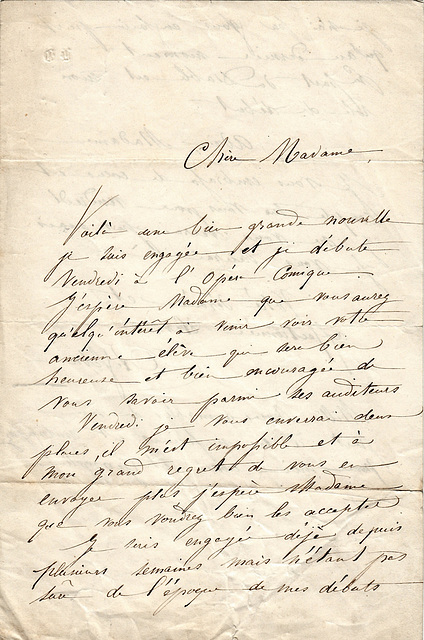 Chère Madame,
Voilà une bien grande nouvelle
je suis engagée et je débute
Vendredi à l'Opéra Comique.
J'espère Madame que vous aurez
quelqu'intérêt à venir voir votre
ancienne élève qui sera bien
heureuse et bien encouragée de
vous savoir parmi ses auditeurs
Vendredi je vous enverrai deux
places, il m'est impossible et à
mon grand regret de vous en
envoyer plus j'espère Madame
que vous voudrez bien les accepter
Je suis engagée déjà depuis
plusieurs semaines mais n'étant pas
sure de l'époque de mes débuts